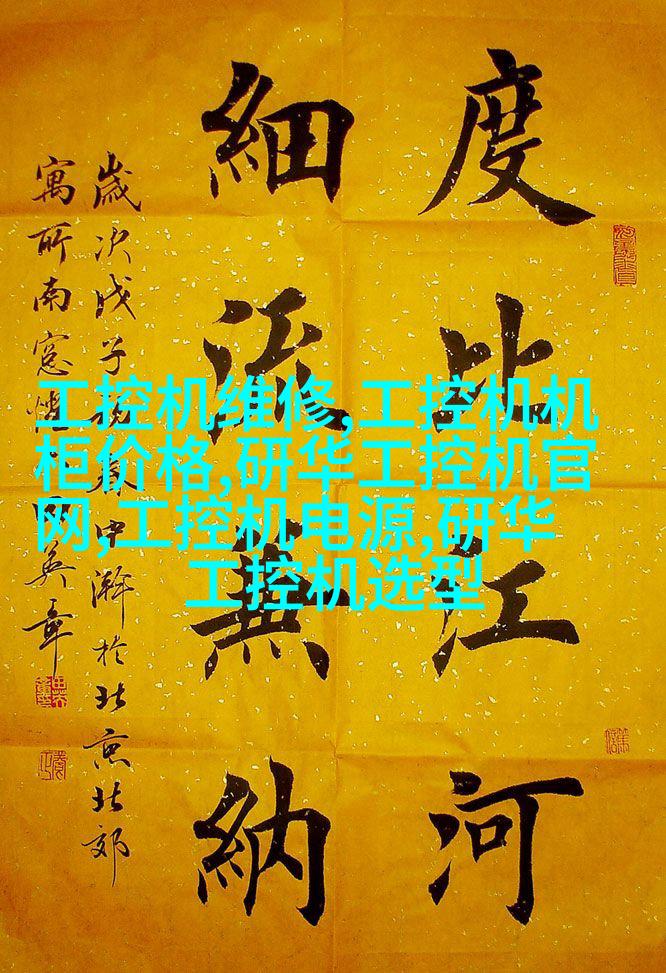 度比江河
細流兼納
歲次戊子春中澣於北京北郊
寓所南窓田英章
工控机维修,工控机机
柜价格,研华工控机官
网,工控机电源,研华
工控机选型